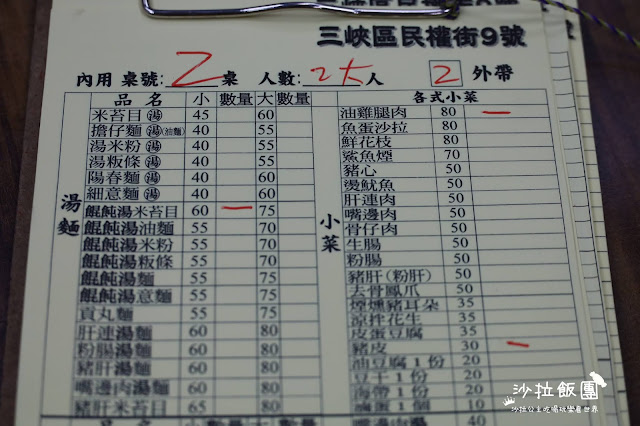 三峽區民權街9號
內用 桌號: 2 桌 人數: 2大 人 2 外帶
品 名 小 數量 大 數量
湯麵
米苔目湯 45 60
擔仔麵湯(油麵) 40 55
湯米粉湯 40 55
湯粄條湯 40 55
陽春麵湯 40 60
細意麵湯 40 60
餛飩湯米苔目 60 一 75
餛飩湯油麵 55 70
餛飩湯米粉 55 70
餛飩湯粄條 55 70
餛飩湯麵 55 75
餛飩湯意麵 55 75
貢丸麵 55 70
肝連湯麵 60 80
粉腸湯麵 60 80
豬肝湯麵 60 80
嘴邊肉湯麵 60 80
豬肝米苔目 65 80
品 名 小 數量 大 數量
各式小菜
小菜
油雞腿肉 80 一
魚蛋沙拉 80
鮮花枝 80
鯊魚煙 70
豬心 50
燙魷魚 50
肝連肉 50
嘴邊肉 50
骨仔肉 50
生腸 50
粉腸 50
豬肝(粉肝) 50
去骨鳳爪 50
煙燻豬耳朵 35
涼拌花生 35
皮蛋豆腐 35
豬皮 30 一
油豆腐1份 20
豆干1份 20
海帶1份 20
滷蛋1個 10
嘴邊肉湯
沙拉飯團
沙拉公主吃喝玩樂看世界